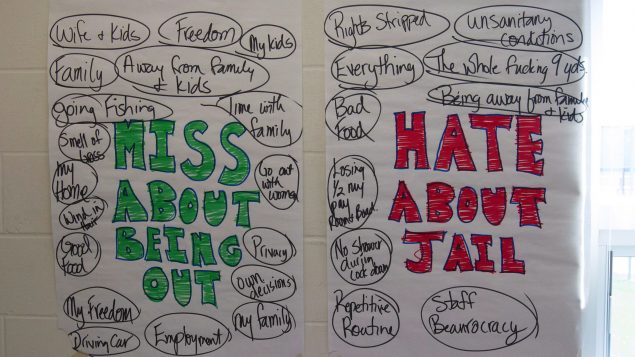 Wife & Kids
Freedom
My Kids
Family
Away from Family
& Kids
going Fishing
Time with
family
Smell of
MISS
ABOUT
BEING
OUT
Go out
with women
My
Home
Wind in
Good
Food
Privacy
own
decisions
My Freedom
my family
Driving Car
Employment
Rights Stripped
Unsanitary
conditions
Everything
The whole fucking 9 yds.
Being away from
& kids
Bad
Food
HATE
ABOUT
JAIL
Losing
1/2 my
pay
Room & Board
No shower
durin
Lock down
Repetitive
Routine
Staff
Beaurocracy